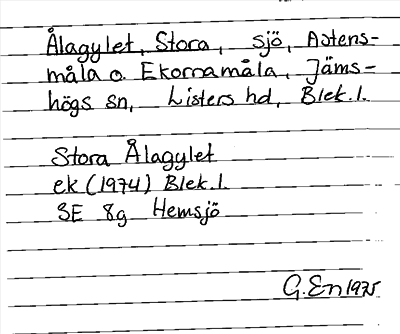 Ålagylet, Stora, sjö, Astens-
måla o. Ekorramåla, Jäms-
högs sn, Listers hd, Blek. l.
Stora Ålagylet
ek (1974) Blek. l.
3E 8g Hemsjö
G. En 1975